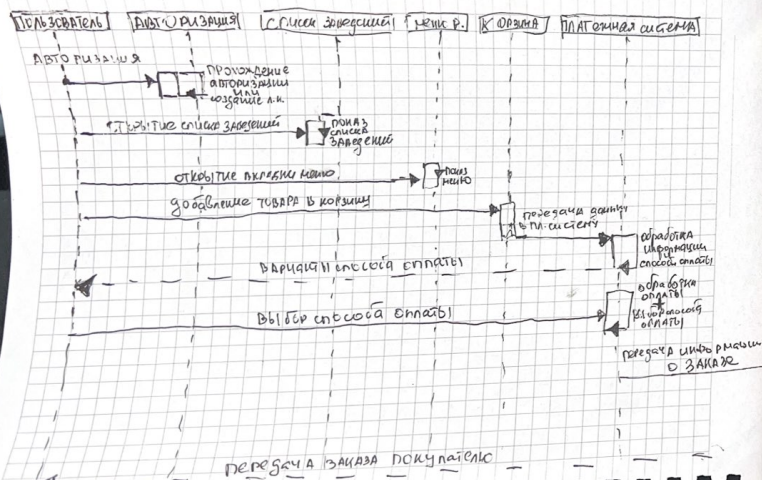 ПОЛЬЗОВАТЕЛЬ
АВТОРИЗАЦИЯ
СПИСОК ЗАВЕДЕНИЙ
МЕНЮ Р.
КОРЗИНА
ПЛАТЕЖНАЯ СИСТЕМА
АВТОРИЗАЦИЯ
ПРОХОЖДЕНИЕ
АВТОРИЗАЦИИ
ИЛИ
СОЗДАНИЕ Л.К.
ОТКРЫТИЕ СПИСКА ЗАВЕДЕНИЙ
ПОКАЗ
СПИСКА
ЗАВЕДЕНИЙ
ОТКРЫТИЕ ВКЛАДКИ МЕНЮ
ПОКАЗ
МЕНЮ
ДОБАВЛЕНИЕ ТОВАРА В КОРЗИНУ
ПЕРЕДАЧА ДАННЫХ
В ПЛ. СИСТЕМУ
ОБРАБОТКА
ИНФОРМАЦИИ
И
СПОСОБ ОПЛАТЫ
ВАРИАНТЫ СПОСОБА ОПЛАТЫ
ОБРАБОТКА
ОПЛАТЫ
+
ВЫБОР СПОСОБА
ОПЛАТЫ
ВЫБОР СПОСОБА ОПЛАТЫ
ПЕРЕДАЧА ИНФОРМАЦИИ
О ЗАКАЗЕ
ПЕРЕДАЧА ЗАКАЗА ПОКУПАТЕЛЮ